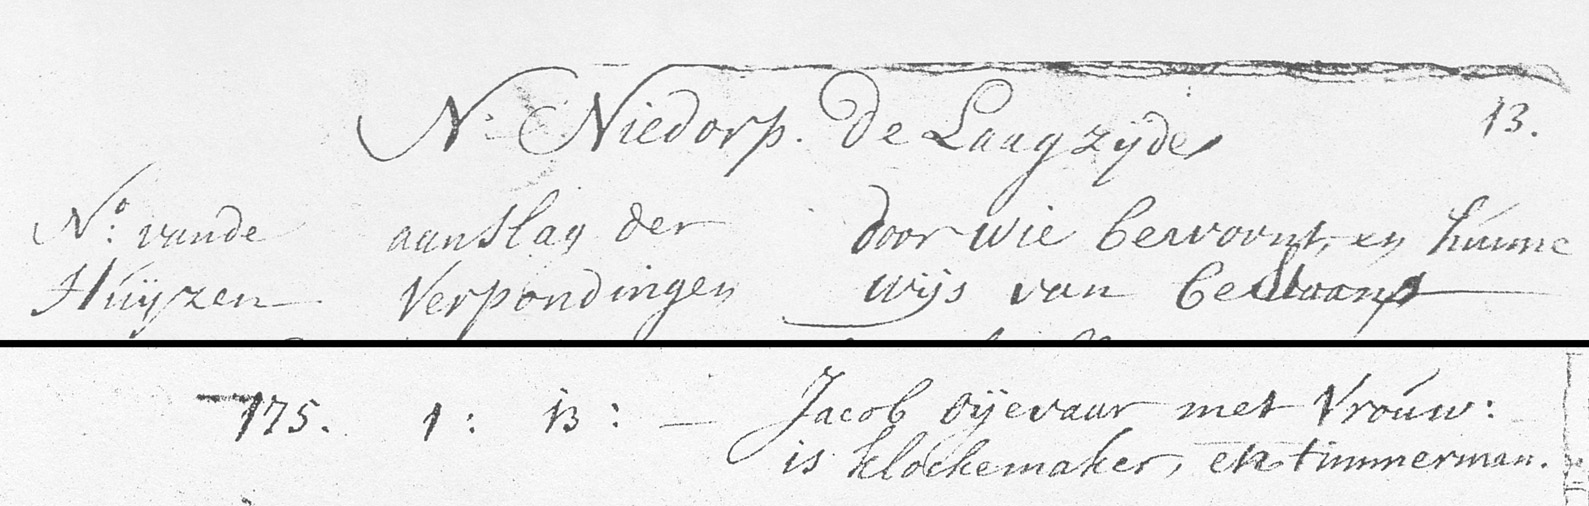 N. Niedorp. De Laagzijde 13.
No: vande aanslag der door wie bewoont, en hunne
Huijzen Verpondingen wijs van bestaan
175. 1: 13: — Jacob Oijevaar met Vrouw:
is klockemaker, en timmerman.